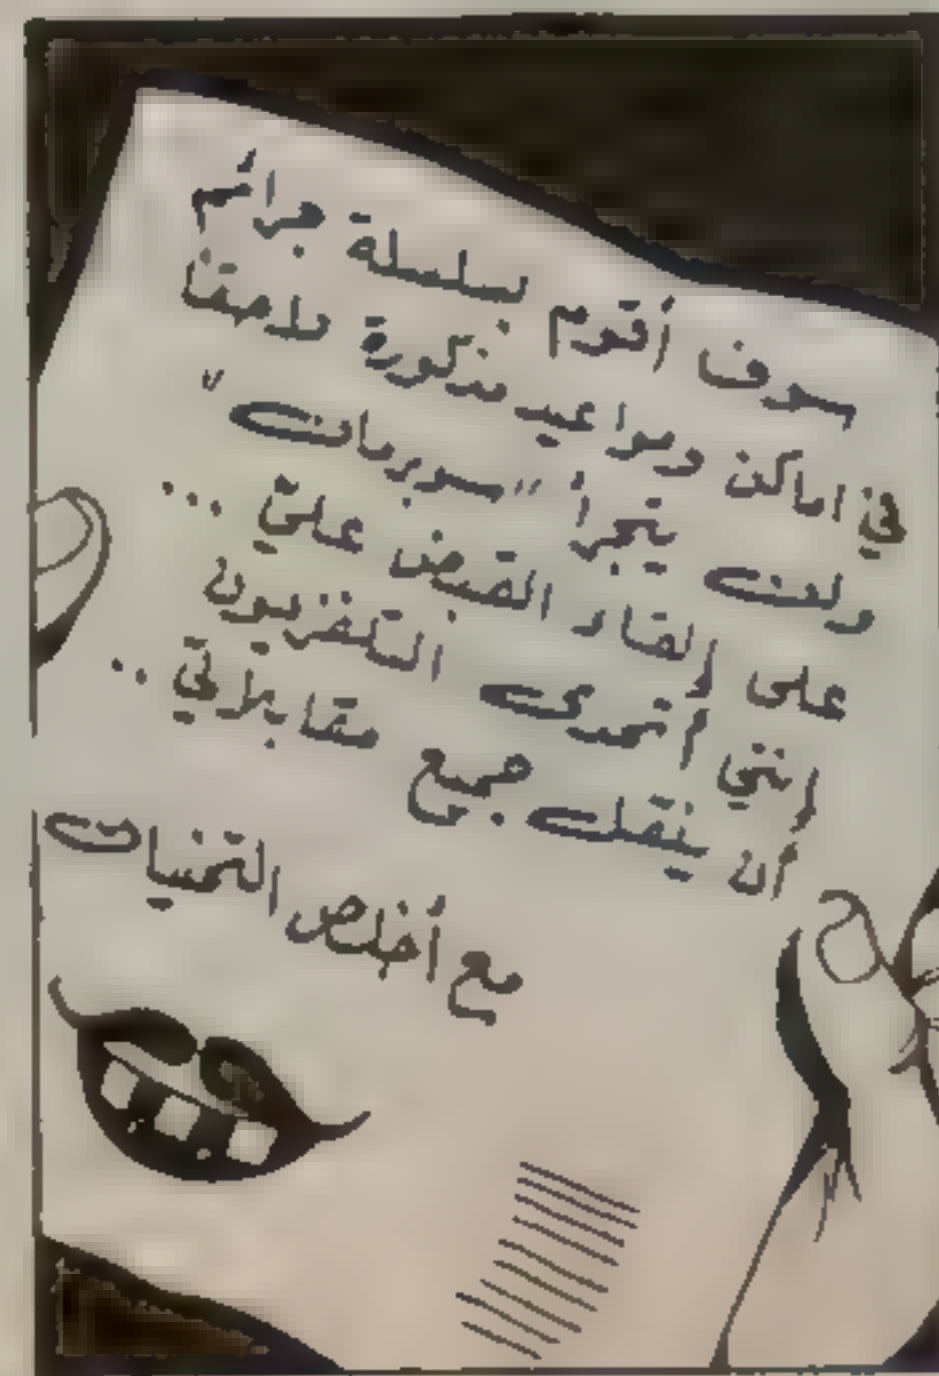 سوف أقوم بسلسلة جرائم
في اماكن ومواعيد مذكورة لاحقا
ولن يتجرأ "سوبرمان"
على إلقاء القبض عليّ ...
إنني أتحدى التلفزيون
أن ينقل جميع مقابلاتي ..
مع أخلص التحيات